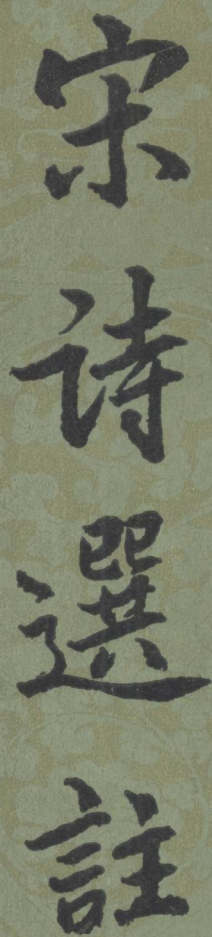 宋诗選註